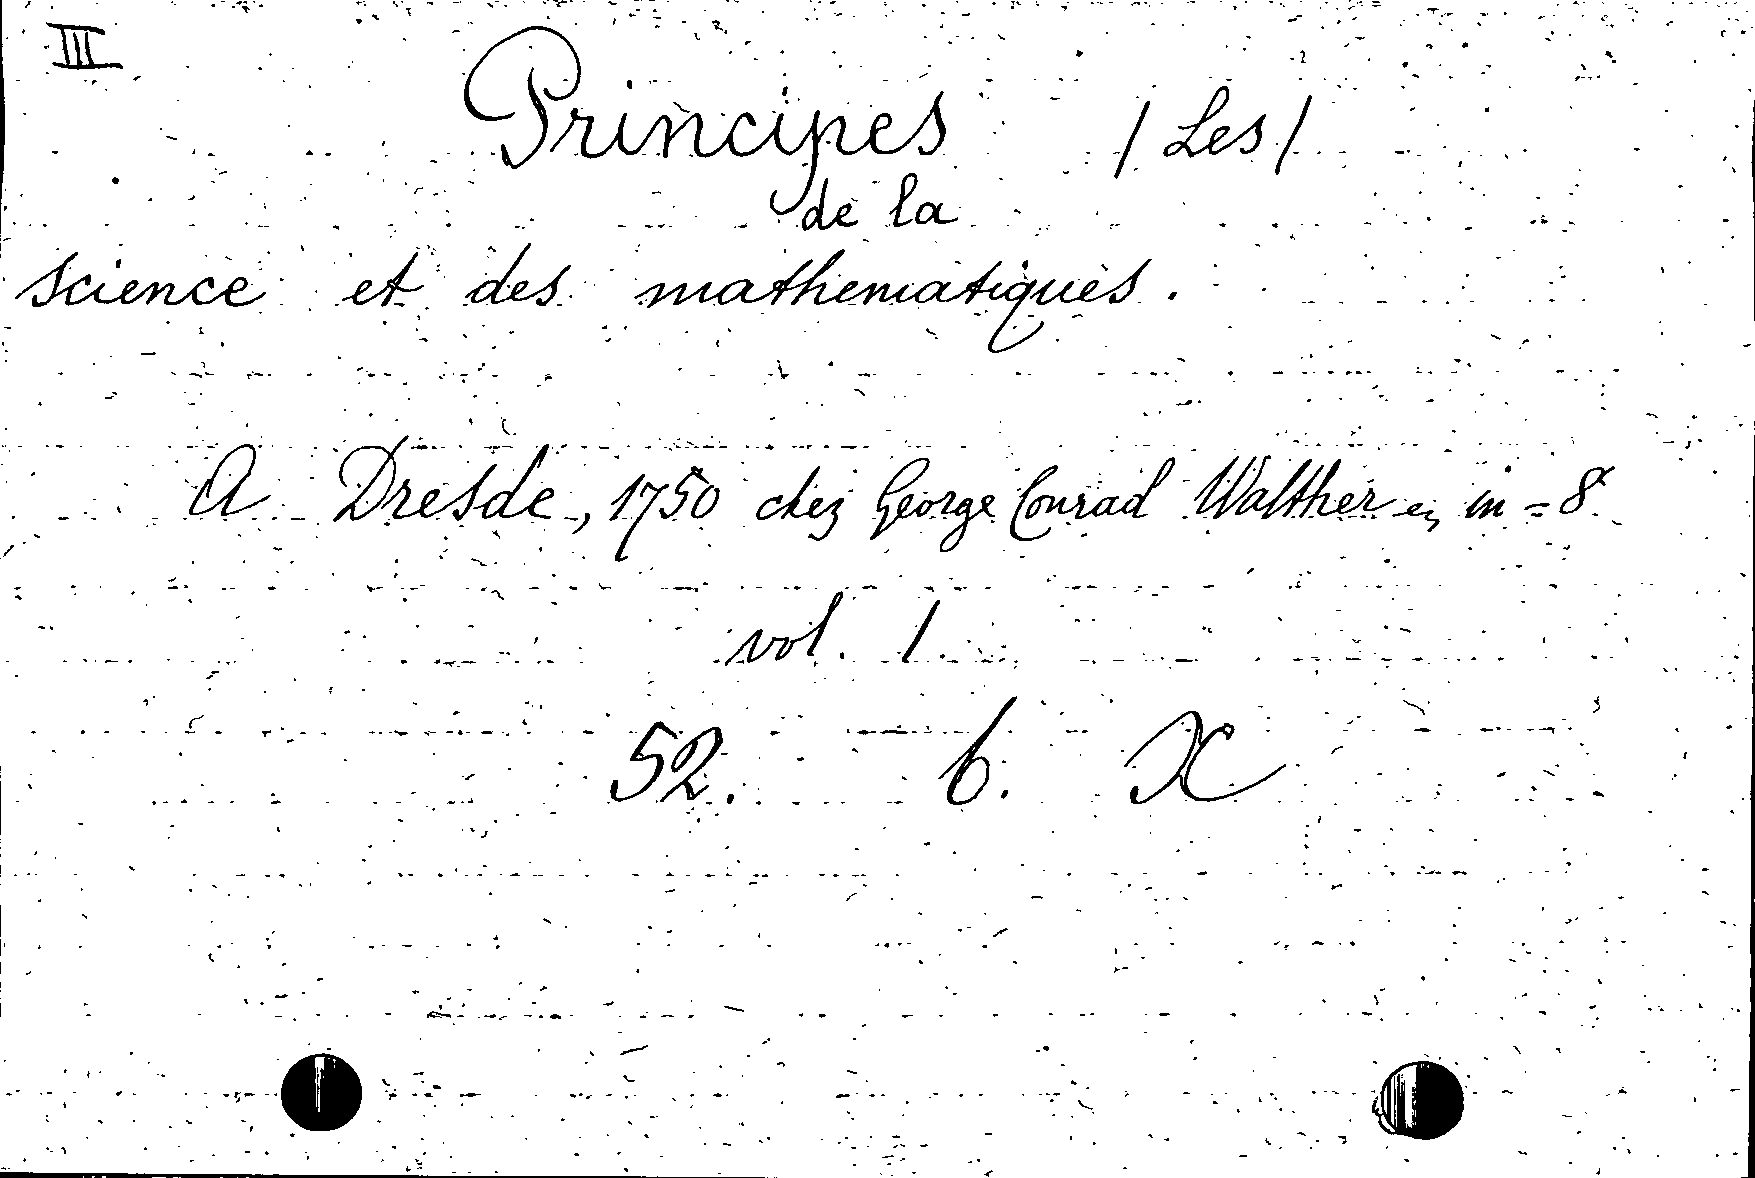 III
Principes / Les /
de la
science et des mathematiques.
A Dresde, 1750 chez George Conrad Walther en in=8
vol. 1.
52. 6. X